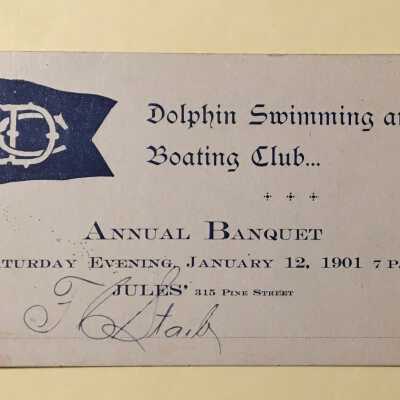 Dolphin Swimming an
Boating Club...
Annual Banquet
aturday Evening, January 12, 1901 7 P.
Jules' 315 Pine Street